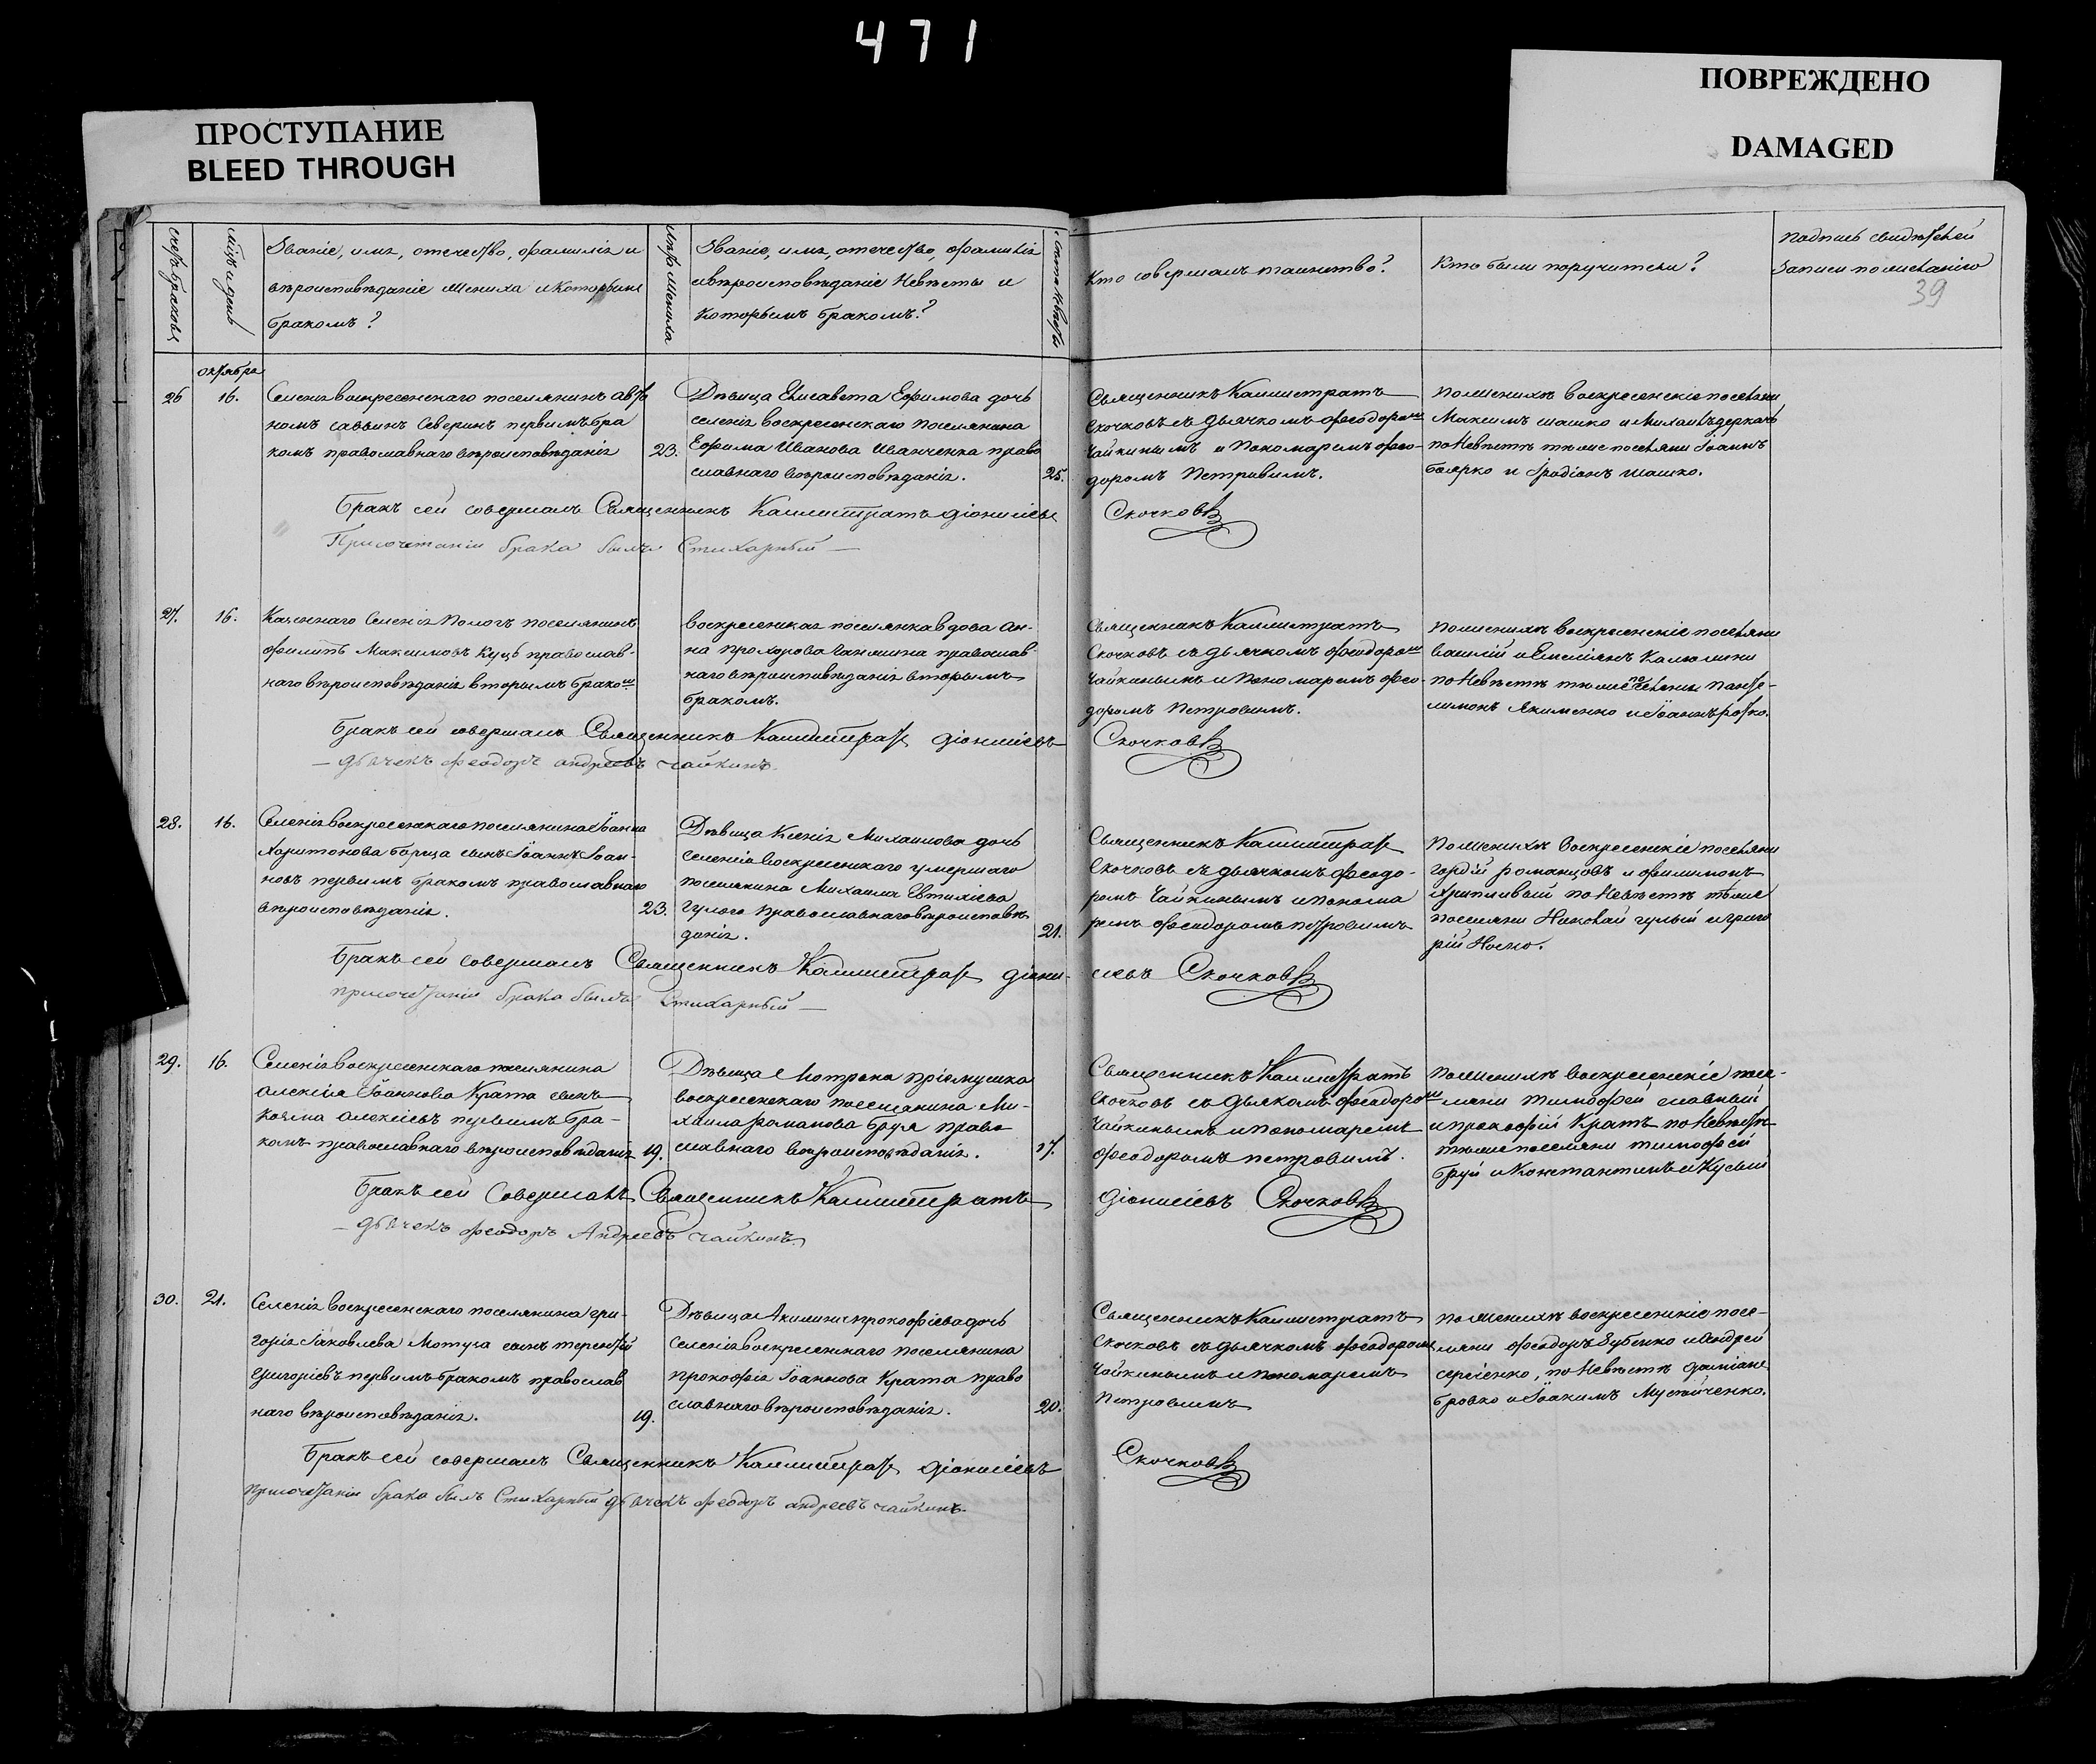 471
ПРОСТУПАНИЕ
BLEED THROUGH
ПОВРЕЖДЕНО
DAMAGED
счетъ браковъ
мѣсяцъ и день
Званіе, имя, отечество, фамилія и
вѣроисповѣданіе жениха и которымъ
бракомъ?
Лѣта жениха
Званіе, имя, отечество, фамилія
и вѣроисповѣданіе невѣсты и
которымъ бракомъ?
Лѣта невѣсты
Кто совершалъ таинство?
Кто были поручители?
Подпись свидѣтелей
записи по желанію
39
октября
26
16.
Селенія воскресенскаго поселянинъ
саввинъ Северинъ первымъ бра
комъ православнаго вѣроисповѣданія
23.
Дѣвица Елисавета Ефимова дочь
селенія воскресенскаго поселянина
Ефима Иванова Иванченка право
славнаго вѣроисповѣданія.
25.
Священникъ Каллистратъ
Скочковъ съ дьячкомъ феодоромъ
Чайкинымъ и пономаремъ фео-
доромъ Петровимъ.
по женихѣ воскресенскіе поселяни
Максимъ шашко и Михаилъ деркачь
по невѣстѣ тѣже поселяни Іоаннъ
боярко и Иродіонъ шашко.
Бракъ сей совершалъ Священникъ Каллистратъ діонисіевъ Скочковъ
При сочетаніи брака былъ Стихарный
27.
16.
Казеннаго Селенія пологъ поселянинъ
филипъ Максимовъ Куць православ-
наго вѣроисповѣданія вторымъ бракомъ
воскресенская поселянка вдова Ан-
на прохорова православ-
наго вѣроисповѣданія вторымъ
бракомъ.
Священникъ Каллистратъ
Скочковъ съ дьячкомъ феодоромъ
Чайкинымъ и пономаремъ фео-
доромъ Петровимъ.
по женихѣ воскресенскіе поселяни
василій и Емеліянъ Калюжни
по невѣстѣ тѣже поселяни Панте-
лимонъ Якименко и Іоаннъ ротко.
Бракъ сей совершалъ Священникъ Каллистратъ діонисіевъ Скочковъ
дьячекъ феодоръ андреевъ чайкинъ.
28.
16.
Селенія воскресенскаго поселянина Іоанна
Харитонова борща сынъ Іоаннъ Іоан-
новъ первымъ бракомъ православнаго
вѣроисповѣданія.
23.
Дѣвица Ксенія Михаилова дочь
Селенія воскресенскаго умершаго
поселянина Михаила Евтихіева
Гулого православнаго вѣроисповѣ-
данія.
21.
Священникъ Каллистратъ
Скочковъ съ дьячкомъ феодо-
ромъ Чайкинымъ и понома
ремъ феодоромъ петровимъ
По женихѣ воскресенскіе поселяни
гордій романцовъ и филимонъ
Хрипливый по невѣстѣ тѣже
поселяни Николай гулый и григо
рій Носко.
Бракъ сей совершалъ Священникъ Каллистратъ діони- сіевъ Скочковъ
при сочетаніи брака былъ Стихарный
29.
16.
Селенія воскресенскаго поселянина
алексія Іоаннова Крата сынъ
Козма алексіевъ первымъ бра-
комъ православнаго вѣроисповѣданія
19.
Дѣвица Мотрона пріемушка
воскресенскаго поселянина Ми-
хаила романова бруя право
славнаго вѣроисповѣданія.
17.
Священникъ Каллистратъ
Скочковъ съ дьякомъ феодоромъ
Чайкинымъ и пономаремъ
феодоромъ петровимъ.
по женихѣ воскресенскіе посе-
ляни тимофей славный
и прокофій Кратъ по невѣстѣ
тѣже поселяни тимофей
бруй и Константинъ
Бракъ сей совершалъ Священникъ Каллистратъ діонисіевъ Скочковъ
дьячекъ феодоръ Андреевъ чайкинъ.
30.
21.
Селенія воскресенскаго поселянина гри-
горія Іаковлева Мотуза сынъ терентій
григоріевъ первымъ бракомъ православ
наго вѣроисповѣданія.
19.
Дѣвица Акилина прокофіева дочь
Селенія воскресенскаго поселянина
прокофія Іоаннова Крата право
славнаго вѣроисповѣданія.
20.
Священникъ Каллистратъ
Скочковъ съ дьячкомъ феодоромъ
Чайкинымъ и пономаремъ
Петровимъ
по женихѣ воскресенскіе посе-
ляни феодоръ Зубенко и Андрей
сергіенко, по невѣстѣ даміанъ
бровко и Іоакимъ Мусійченко.
Бракъ сей совершалъ Священникъ Каллистратъ діонисіевъ Скочковъ
при сочетаніи брака былъ Стихарный дьячекъ феодоръ андреевъ чайкинъ.